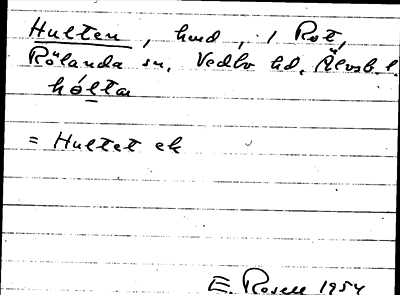 Hulten, hmd, 1 Rot,
Rölanda sn, Vedbo hd, Älvsb. l.
hólta
= Hultet ek
E. Rosell 1954